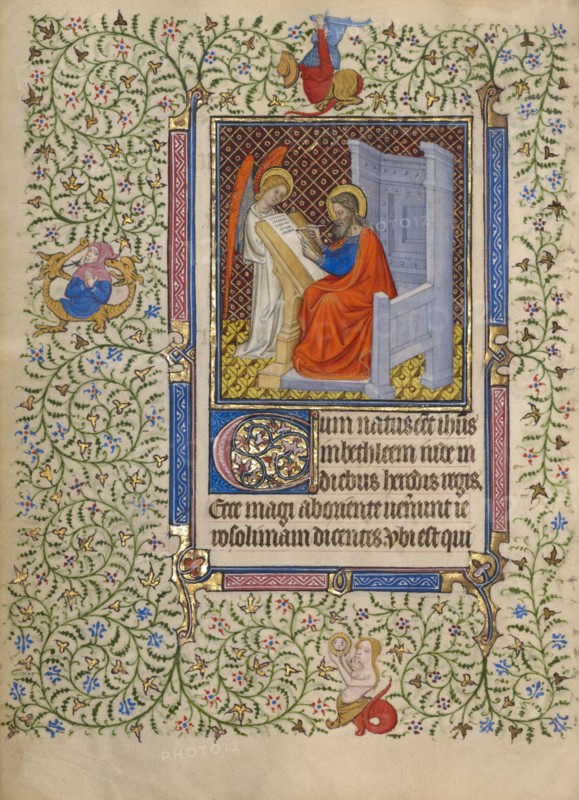 Cum natus eēt ihūs
in bethleem iude in
diebus herodis regis.
Ecce magi ab oriente uenerunt ie
rosolimam dicentes vbi est qui
PHOTO12